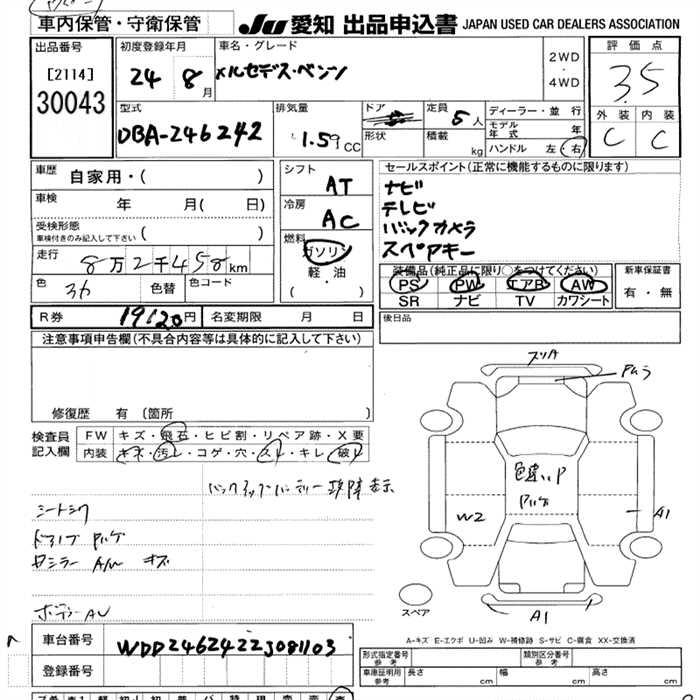 車内保管・守衛保管
JU 愛知 出品申込書 JAPAN USED CAR DEALERS ASSOCIATION
出品番号
[2114]
30043
初度登録年月
24 8月
車名・グレード
メルセデス・ベンツ
2WD
・
4WD
評価点
3.5
外装 内装
C C
型式
DBA-246242
排気量
1.59 CC
ドア
形状
定員 5人
積載 kg
ディーラー・並行
モデル年式 年
ハンドル 左・右
車歴 自家用・( )
車検 年 月( 日)
受検形態
車検付きのみ記入して下さい ( )
走行 8万2千458km
色 シカ 色替 色コード
シフト AT
冷房 AC
燃料 ガソリン
軽・油
( ・ )
セールスポイント(正常に機能するものに限ります)
ナビ
テレビ
バックカメラ
スペアキー
装備品(純正品に限り○をつけてください)
PS PW エアB AW
SR ナビ TV カワシート
新車保証書
有・無
R券 19120円 名変期限 月 日
後日品
注意事項申告欄(不具合内容等は具体的に記入して下さい)
修復歴 有 (箇所 )
検査員記入欄
FW キズ・飛石・ヒビ割・リペア跡・X要
内装 キズ・汚レ・コゲ・穴・スレ・キレ・破レ
バックアップバッテリー故障表示
シートシワ
ドアノブ ハゲ
ホイラー A/W キズ
ボデー AU
スリA
色違いP
ハゲ
W2
A1
A1
スペア
A-キズ E-エクボ U-凹み W-補修跡 S-サビ C-腐食 XX-交換済
車台番号 WDD2462422J081103
登録番号
形式指定番号 参考
類別区分番号 参考
車庫証明用 参考 長さ cm 幅 cm 高さ cm